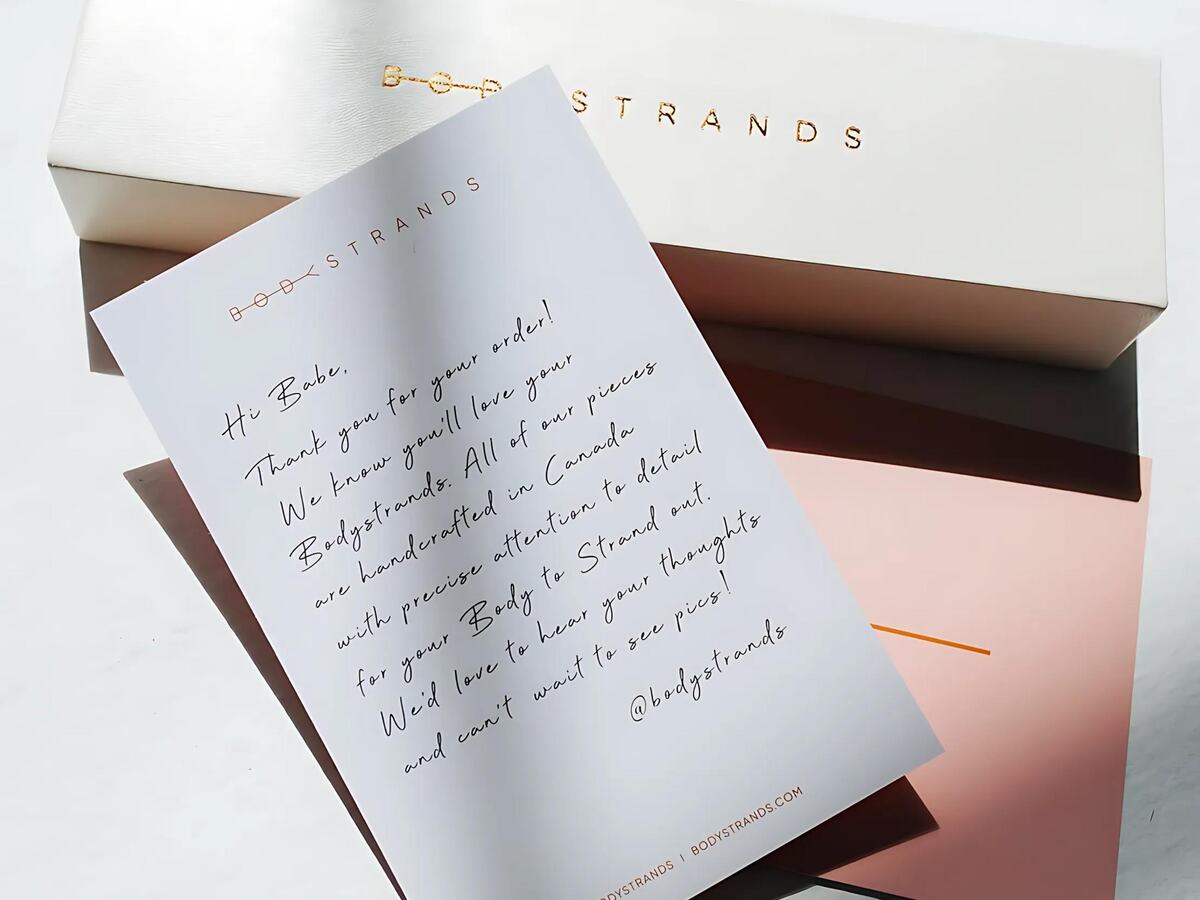 BODYSTRANDS
Hi Babe,
Thank you for your order!
We know you'll love your
Bodystrands. All of our pieces
are handcrafted in Canada
with precise attention to detail
for your Body to Strand out.
We'd love to hear your thoughts
and can't wait to see pics!
@bodystrands
BODYSTRANDS.COM
STRANDS